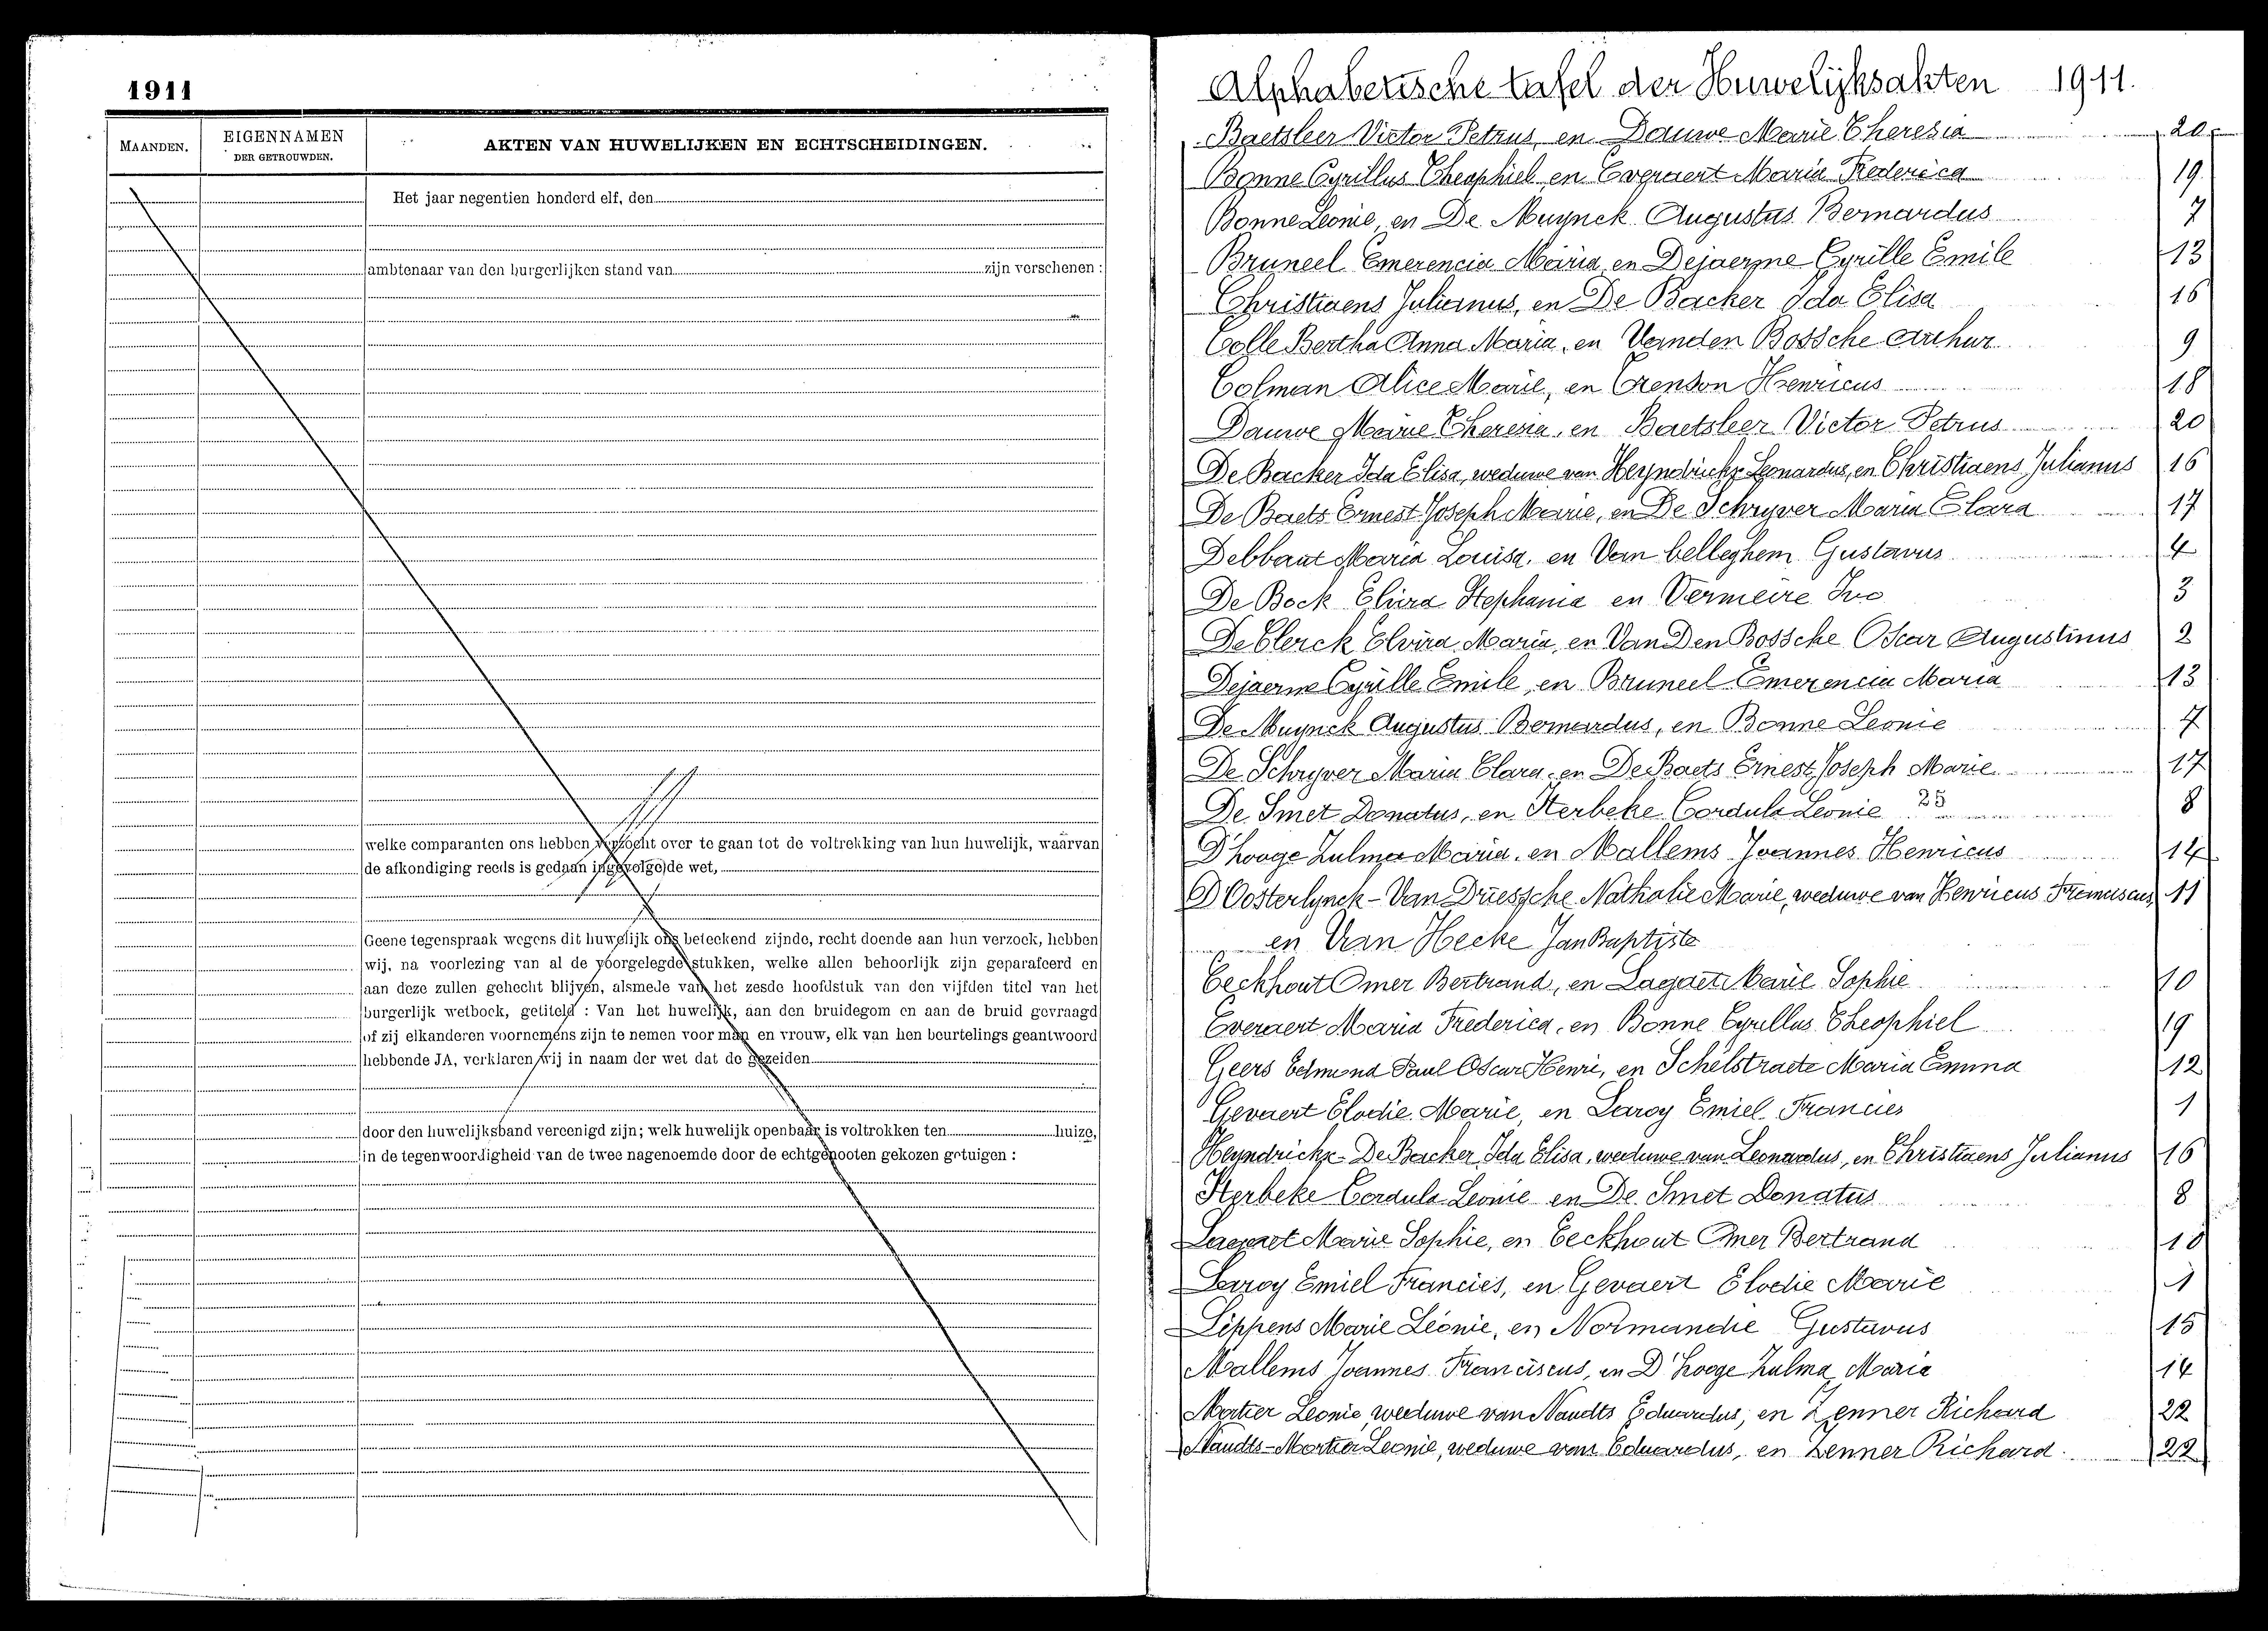 1911
MAANDEN.
EIGENNAMEN
DER GETROUWDEN.
AKTEN VAN HUWELIJKEN EN ECHTSCHEIDINGEN.
Het jaar negentien honderd elf, den
ambtenaar van den burgerlijken stand van zijn verschenen :
welke comparanten ons hebben verzocht over te gaan tot de voltrekking van hun huwelijk, waarvan
de afkondiging reeds is gedaan ingevolge de wet,
Geene tegenspraak wegens dit huwelijk ons beteekend zijnde, recht doende aan hun verzoek, hebben
wij, na voorlezing van al de voorgelegde stukken, welke allen behoorlijk zijn geparafeerd en
aan deze zullen gehecht blijven, alsmede van het zesde hoofdstuk van den vijfden titel van het
burgerlijk wetboek, getiteld : Van het huwelijk, aan den bruidegom en aan de bruid gevraagd
of zij elkanderen voornemens zijn te nemen voor man en vrouw, elk van hen beurtelings geantwoord
hebbende JA, verklaren wij in naam der wet dat de gezeiden
door den huwelijksband vereenigd zijn; welk huwelijk openbaar is voltrokken ten huize,
in de tegenwoordigheid van de twee nagenoemde door de echtgenooten gekozen getuigen :
Alphabetische tafel der Huwelijksakten 1911.
Baetsleer Victor Petrus, en Dauwe Marie Theresia 20
Bonne Cyrillus Theophiel en Everaert Maria Frederica 19
Bonne Leonie, en De Muynck Augustus Bernardus 7
Bruneel Emerencia Maria en Dejaerne Cyrille Emile 13
Christiaens Julianus, en De Backer Ida Elisa 16
Colle Bertha Anna Maria, en Vanden Bossche Arthur 9
Colman Alice Marie, en Henricus 18
Dauwe Marie Theresia, en Baetsleer Victor Petrus 20
De Backer Ida Elisa, weduwe van Heyndrickx Leonardus, en Christiaens Julianus 16
De Baets Ernest Joseph Marie, en De Schryver Maria Clara 17
Debbaut Maria Louisa, en Van belleghem Gustavus 4
De Bock Elvira Stephania en Vermeire Ivo 3
De Clerck Elvira Maria, en Van Den Bossche Oscar Augustinus 2
Dejaerne Cyrille Emile, en Bruneel Emerencia Maria 13
De Muynck Augustus Bernardus, en Bonne Leonie 7
De Schryver Maria Clara, en De Baets Ernest Joseph Marie 17
De Smet Donatus, en Sterbeke Cordula Leonie 25 8
D'hooge Zulma Maria, en Mallems Joannes Henricus 14
D'Oosterlynck - Van Driessche Nathalie Marie, weduwe van Henricus Franciscus, 11
en Van Hecke Jan Baptiste
Eeckhout Omer Bertrand, en Lagaet Marie Sophie 10
Everaert Maria Frederica, en Bonne Cyrillus Theophiel 19
Geers Edmond Paul Oscar Henri, en Schelstraete Maria Emma 12
Gevaert Elodie Marie, en Laroy Emiel Francies 1
Heyndrickx - De Backer Ida Elisa, weduwe van Leonardus, en Christiaens Julianus 16
Sterbeke Cordula Leonie en De Smet Donatus 8
Lagaet Marie Sophie, en Eeckhout Omer Bertrand 10
Laroy Emiel Francies, en Gevaert Elodie Marie 1
Lippens Marie Léonie, en Normandie Gustavus 15
Mallems Joannes Franciscus, en D'hooge Zulma Maria 14
Mortier Leonie, weduwe van Naudts Eduardus, en Zenner Richard 22
Naudts - Mortier Leonie, weduwe van Eduardus, en Zenner Richard 22